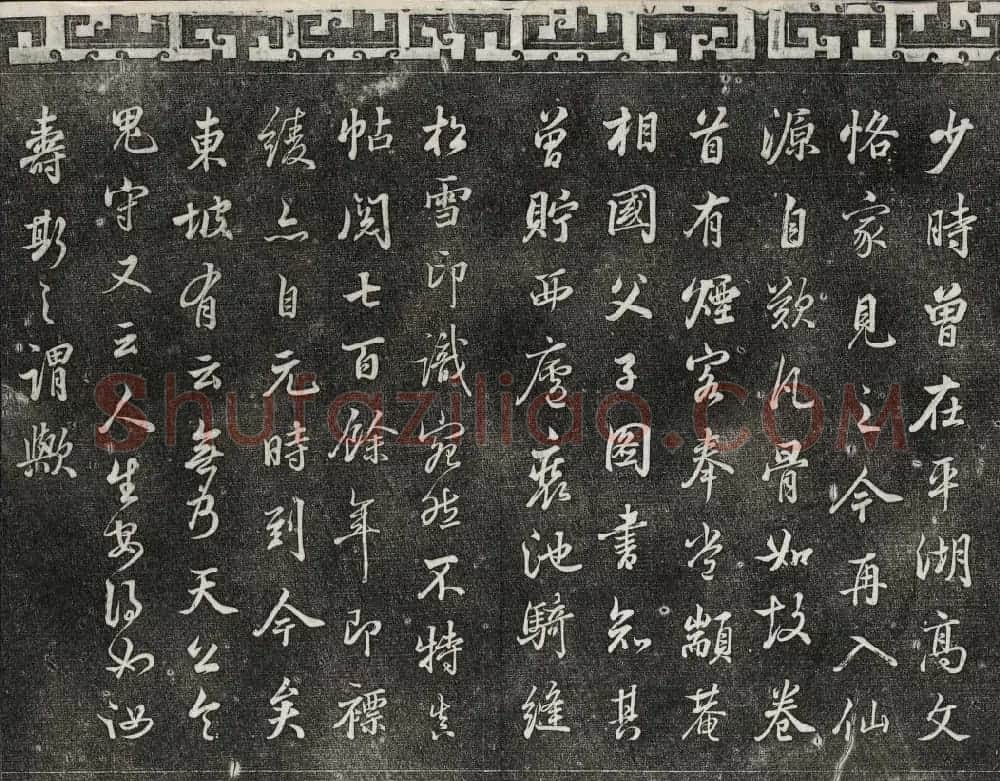 少時曾在平湖高文
恪家見之今再入仙
源自歎凡骨如故卷
首有煙客奉常顓菴
相國父子圖書知其
曾貯西廬裏池騎縫
松雪印識宛然不特真
帖閱七百餘年即褾
綾亦自元時到今矣
東坡有云無乃天公令
鬼守又云人生安得如汝
壽斯之謂歟
Shufaziliao.COM